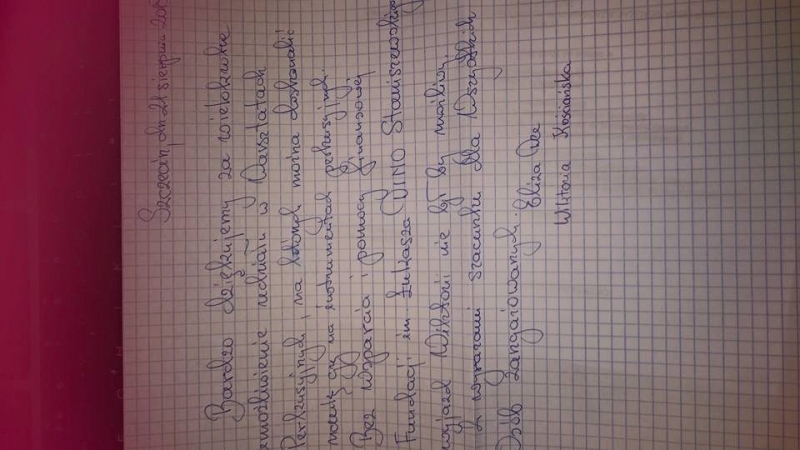 Szczecin, dn 21 sierpnia
Bardzo dziękujemy za wielokrotne
umożliwienie udziału w Warsztatach
Perkusyjnych, na których można doskonalić
grę na instrumentach perkusyjnych.
Bez wsparcia i pomocy finansowej
Fundacji im Łukasza DINO Staniszewskiego
wyjazd Wiktorii nie był by możliwy.
Z wyrazami szacunku dla Wszystkich
Osób zangażowanych.
Eliza
Wiktoria Kościańska